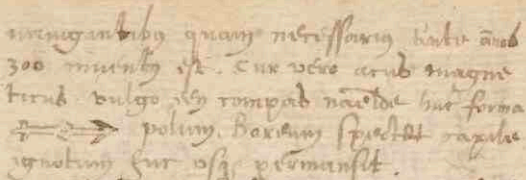 nauigantibus quam necessarius ante annos
300 inuentus est. Cur vero acus magne
ticus vulgo compas hac forma
polum Boreum spectet
ignotum huc usque permansit.